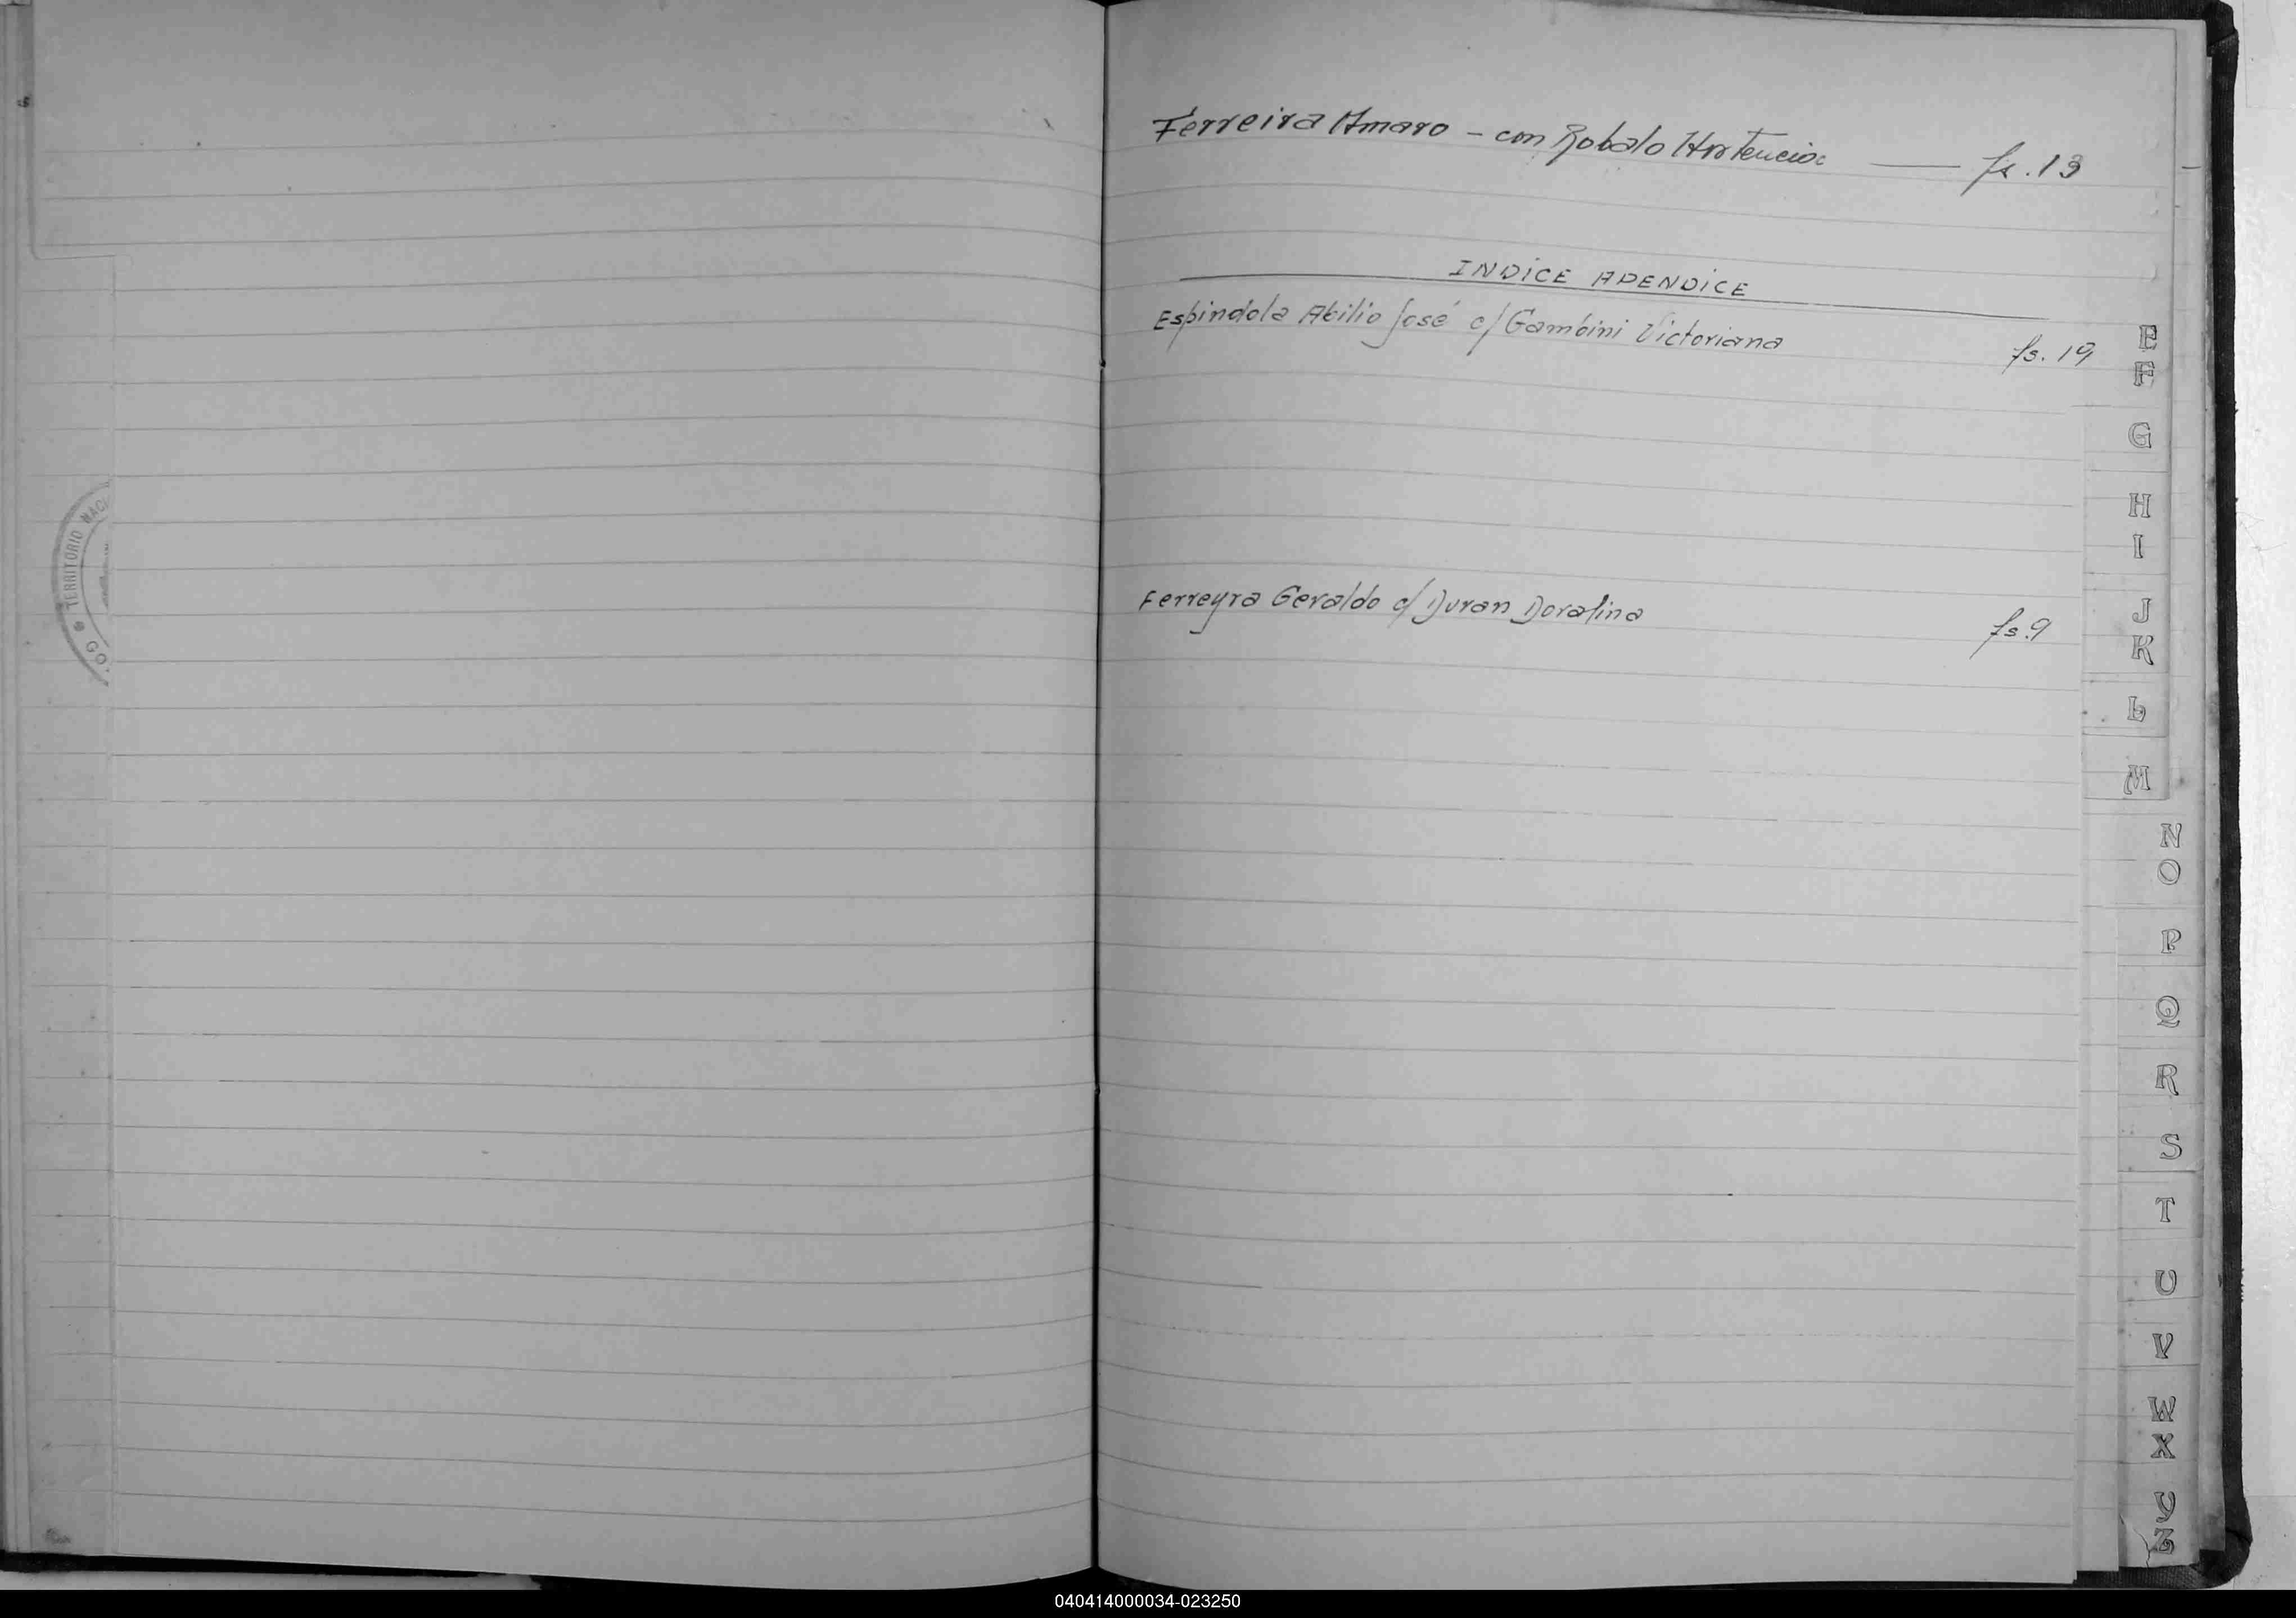 Ferreira Amaro - con Robalo Hortencia —— fs. 13
INDICE APENDICE
Espindola Abilio José c/ Gambini Victoriana fs. 19
Ferreyra Geraldo c/ Duran Doralina fs. 9
E
F
G
H
I
J
K
L
M
N
O
P
Q
R
S
T
U
V
W
X
Y
Z
TERRITORIO NAC
GO
040414000034-023250